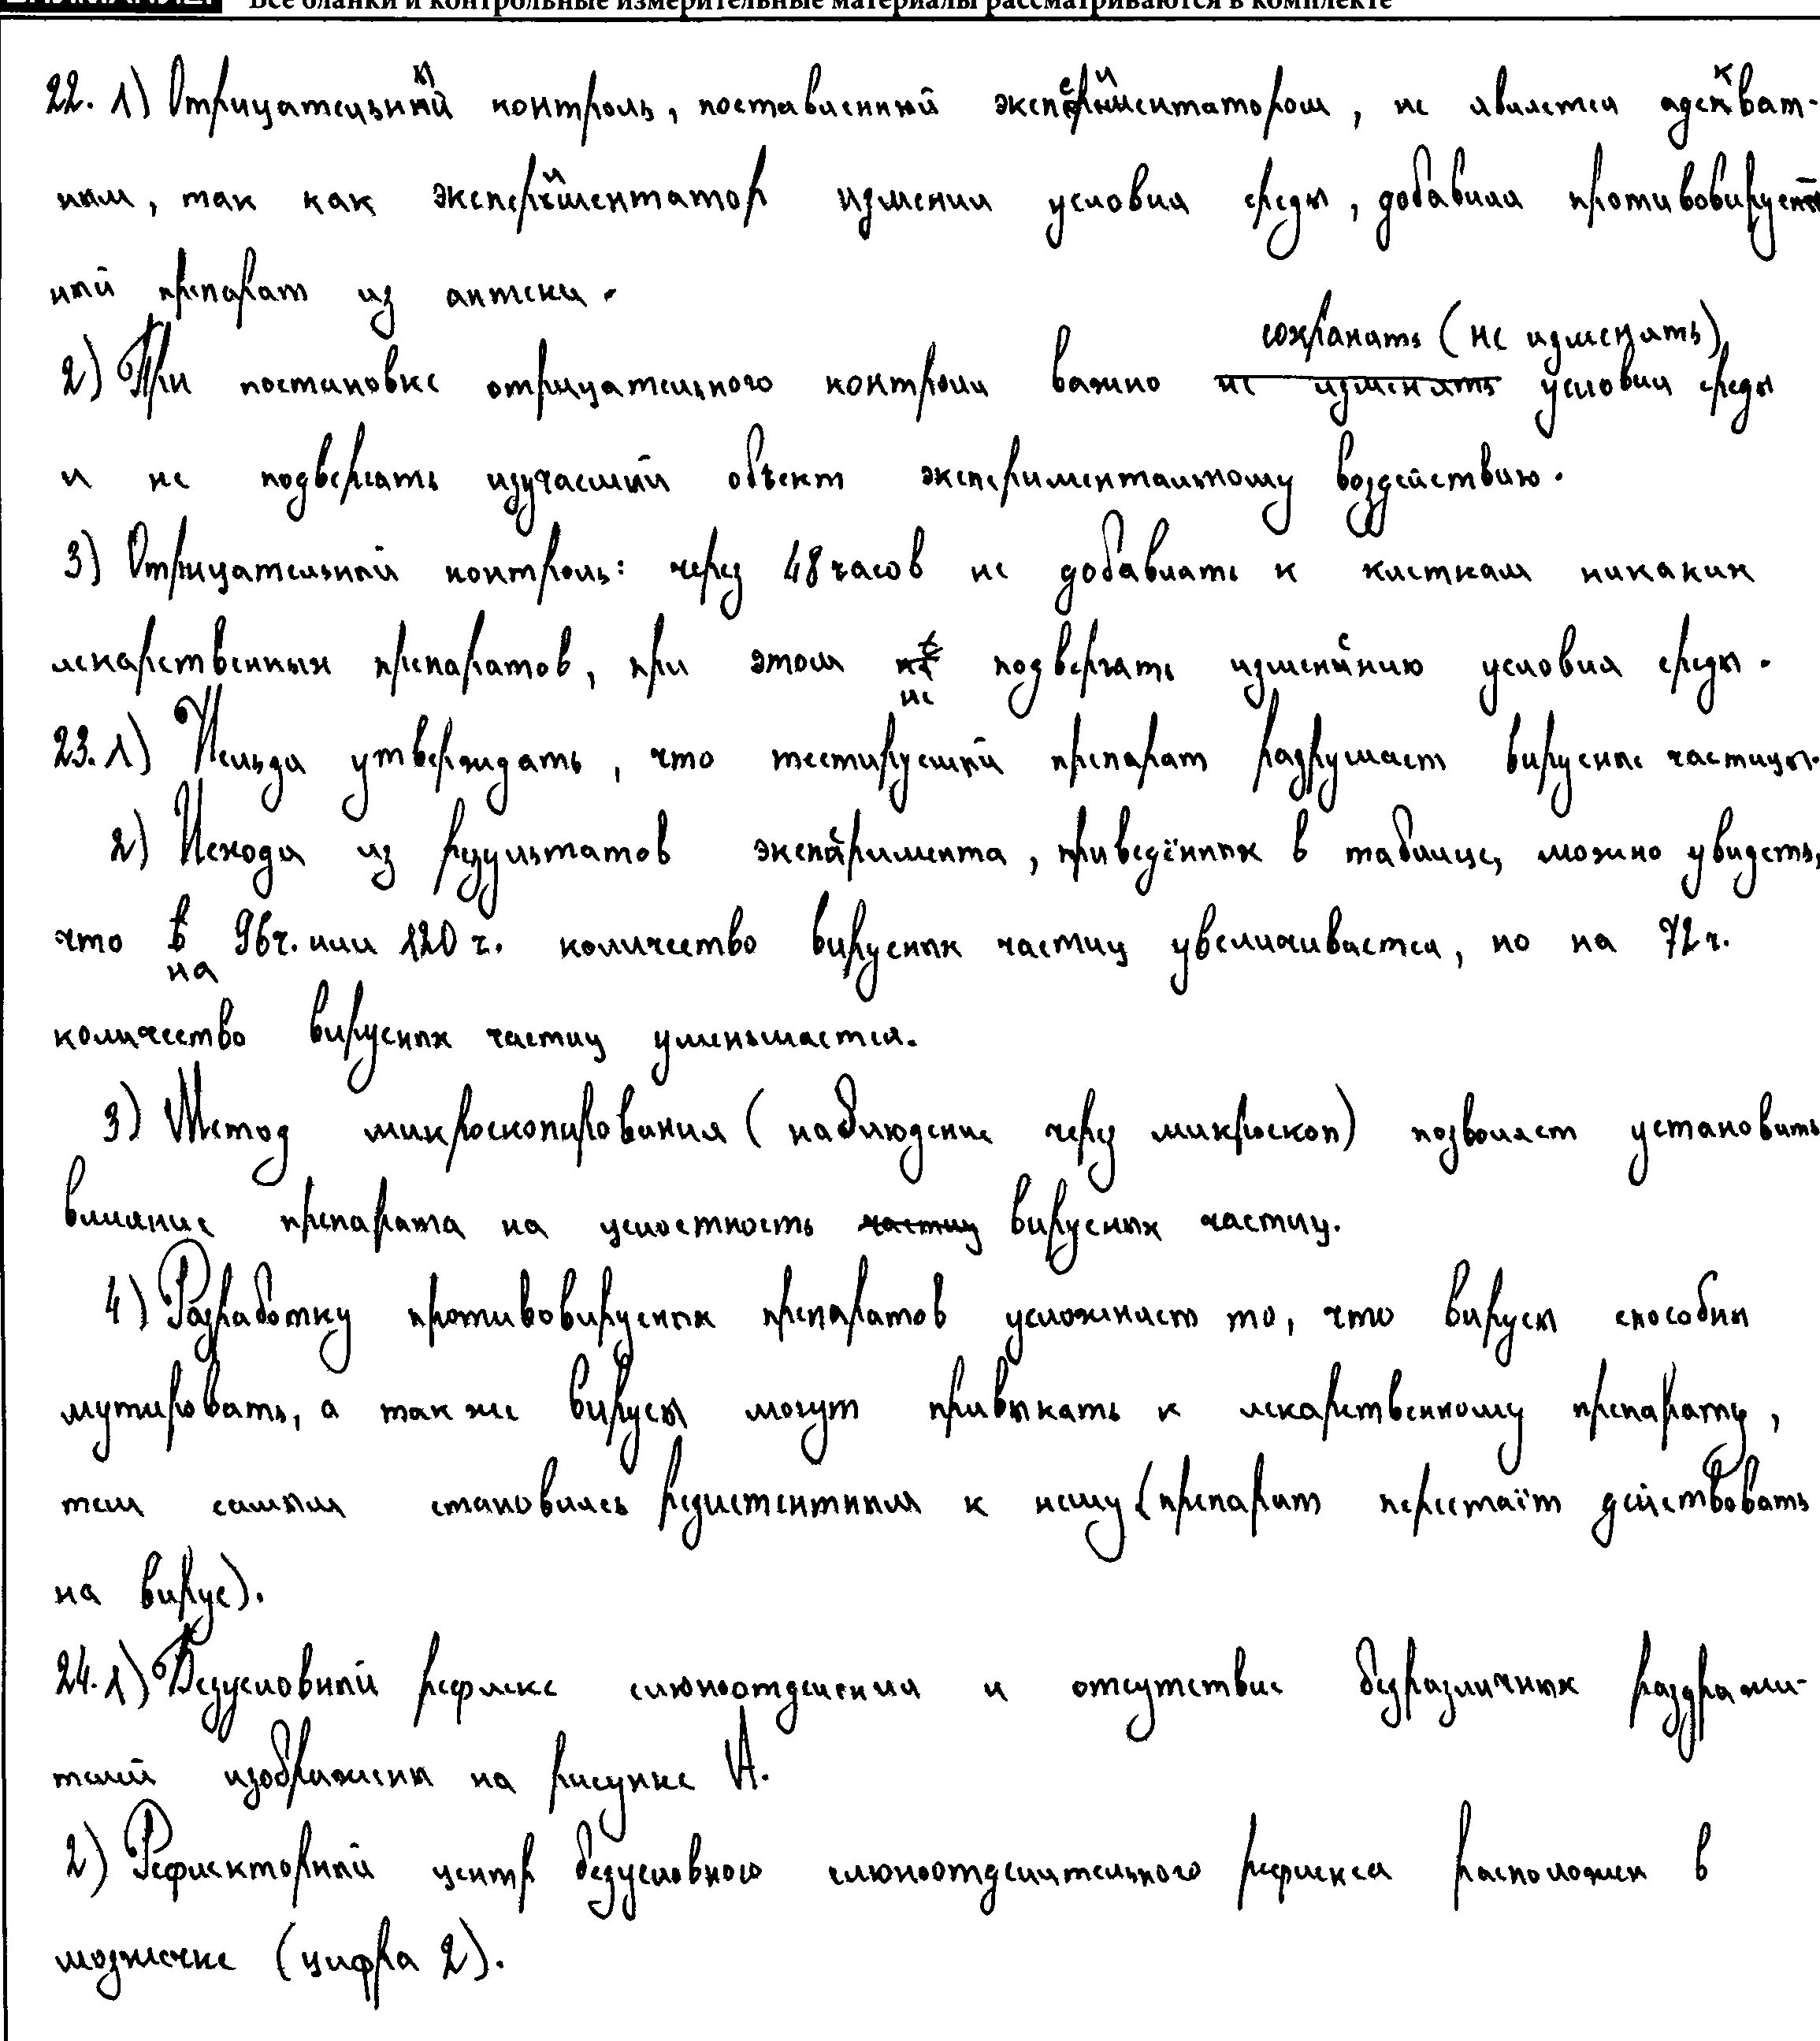 Все бланки и контрольные измерительные материалы рассматриваются в комплекте
22. 1) Отрицательный контроль, поставленный экспериментатором, не является адекват-
ным, так как экспериментатор изменил условия среды, добавила противовирус
ный препарат из аптеки.
сохранять (не изменять)
2) При постановке отрицательного контроля важно не изменять условия среды
и не подвергать изучаемый объект экспериментальному воздействию.
3) Отрицательный контроль: через 48 часов не добавлять к клеткам никаких
лекарственных препаратов, при этом не подвергать изменению условия среды.
23. 1) Нельзя утверждать, что тестируемый препарат разрушает вирусные частицы.
2) Исходя из результатов эксперимента, приведённых в таблице, можно увидеть,
что на 96 ч. или 120 ч. количество вирусных частиц увеличивается, но на 72 ч.
количество вирусных частиц уменьшается.
3) Метод микроскопирования (наблюдение через микроскоп) позволяет установить
влияние препарата на целостность частиц вирусных частиц.
4) Разработку противовирусных препаратов усложняет то, что вирусы способны
мутировать, а также вирусы могут привыкать к лекарственному препарату,
тем самым становясь резистентным к нему (препарат перестаёт действовать
на вирус).
24. 1) Безусловный рефлекс слюноотделения и отсутствие безразличных раздражи-
телей изображены на рисунке А.
2) Рефлекторный центр безусловного слюноотделительного рефлекса расположен в
мозжечке (цифра 2).